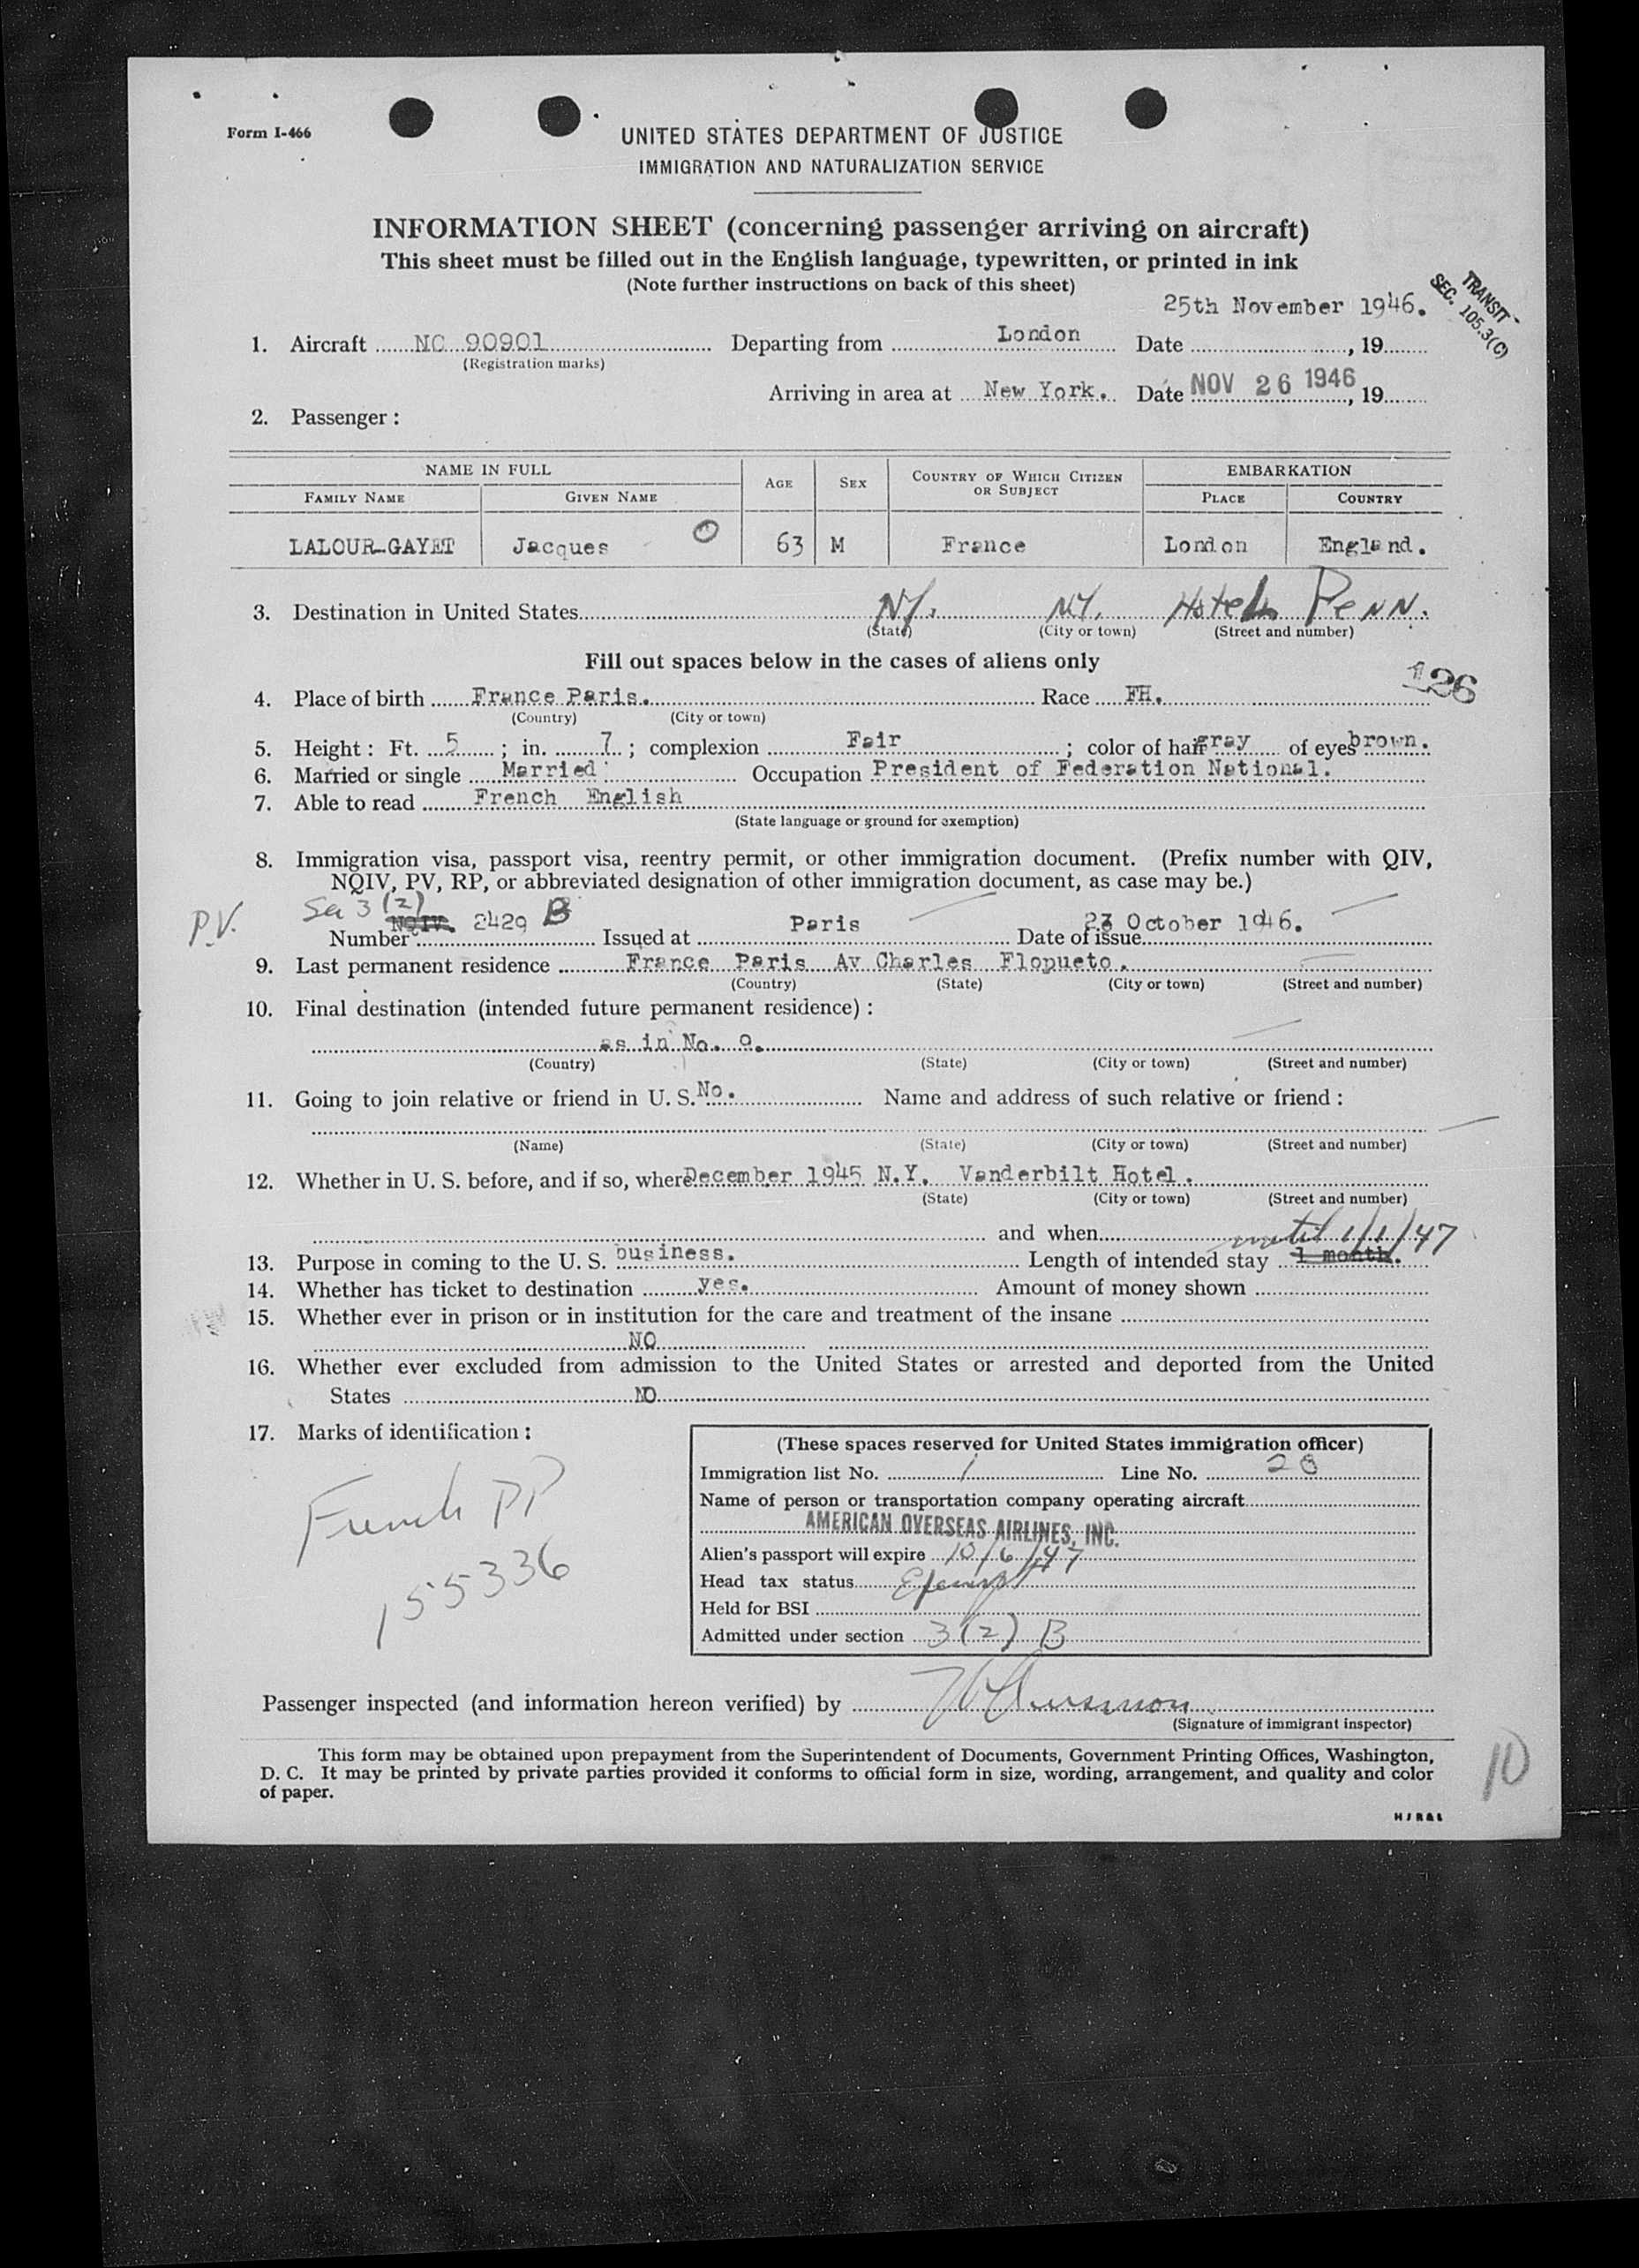 Form I-466
UNITED STATES DEPARTMENT OF JUSTICE
IMMIGRATION AND NATURALIZATION SERVICE
INFORMATION SHEET (concerning passenger arriving on aircraft)
This sheet must be filled out in the English language, typewritten, or printed in ink
(Note further instructions on back of this sheet)
TRANSIT
SEC. 105.3(C)
25th November 1946.
1. Aircraft NC 90901 Departing from London Date , 19
(Registration marks)
Arriving in area at New York. Date NOV 26 1946, 19
2. Passenger :
NAME IN FULL AGE SEX COUNTRY OF WHICH CITIZEN OR SUBJECT EMBARKATION
FAMILY NAME GIVEN NAME PLACE COUNTRY
LALOUR-GAYET Jacques 63 M France London England.
3. Destination in United States NY. NY. Hotel Penn.
(State) (City or town) (Street and number)
Fill out spaces below in the cases of aliens only
126
4. Place of birth France Paris. Race FH.
(Country) (City or town)
5. Height : Ft. 5 ; in. 7 ; complexion Fair ; color of hair gray of eyes brown.
6. Married or single Married Occupation President of Federation National.
7. Able to read French English
(State language or ground for exemption)
8. Immigration visa, passport visa, reentry permit, or other immigration document. (Prefix number with QIV,
NQIV, PV, RP, or abbreviated designation of other immigration document, as case may be.)
P.V. 3 (2)
Number NQIV. 2429 B Issued at Paris Date of issue 23 October 1946.
9. Last permanent residence France Paris Av Charles Flopueto.
(Country) (State) (City or town) (Street and number)
10. Final destination (intended future permanent residence) :
as in No. 9.
(Country) (State) (City or town) (Street and number)
11. Going to join relative or friend in U. S. No. Name and address of such relative or friend :
(Name) (State) (City or town) (Street and number)
12. Whether in U. S. before, and if so, where December 1945 N.Y. Vanderbilt Hotel.
(State) (City or town) (Street and number)
and when until 1/1/47
13. Purpose in coming to the U. S. business. Length of intended stay 1 month.
14. Whether has ticket to destination yes. Amount of money shown
15. Whether ever in prison or in institution for the care and treatment of the insane
NO
16. Whether ever excluded from admission to the United States or arrested and deported from the United
States NO
17. Marks of identification :
French PP
155336
(These spaces reserved for United States immigration officer)
Immigration list No. 1 Line No. 28
Name of person or transportation company operating aircraft
AMERICAN OVERSEAS AIRLINES, INC.
Alien's passport will expire 10/6/47
Head tax status Exempt
Held for BSI
Admitted under section 3 (2) B
Passenger inspected (and information hereon verified) by
(Signature of immigrant inspector)
This form may be obtained upon prepayment from the Superintendent of Documents, Government Printing Offices, Washington,
D. C. It may be printed by private parties provided it conforms to official form in size, wording, arrangement, and quality and color
of paper.
10